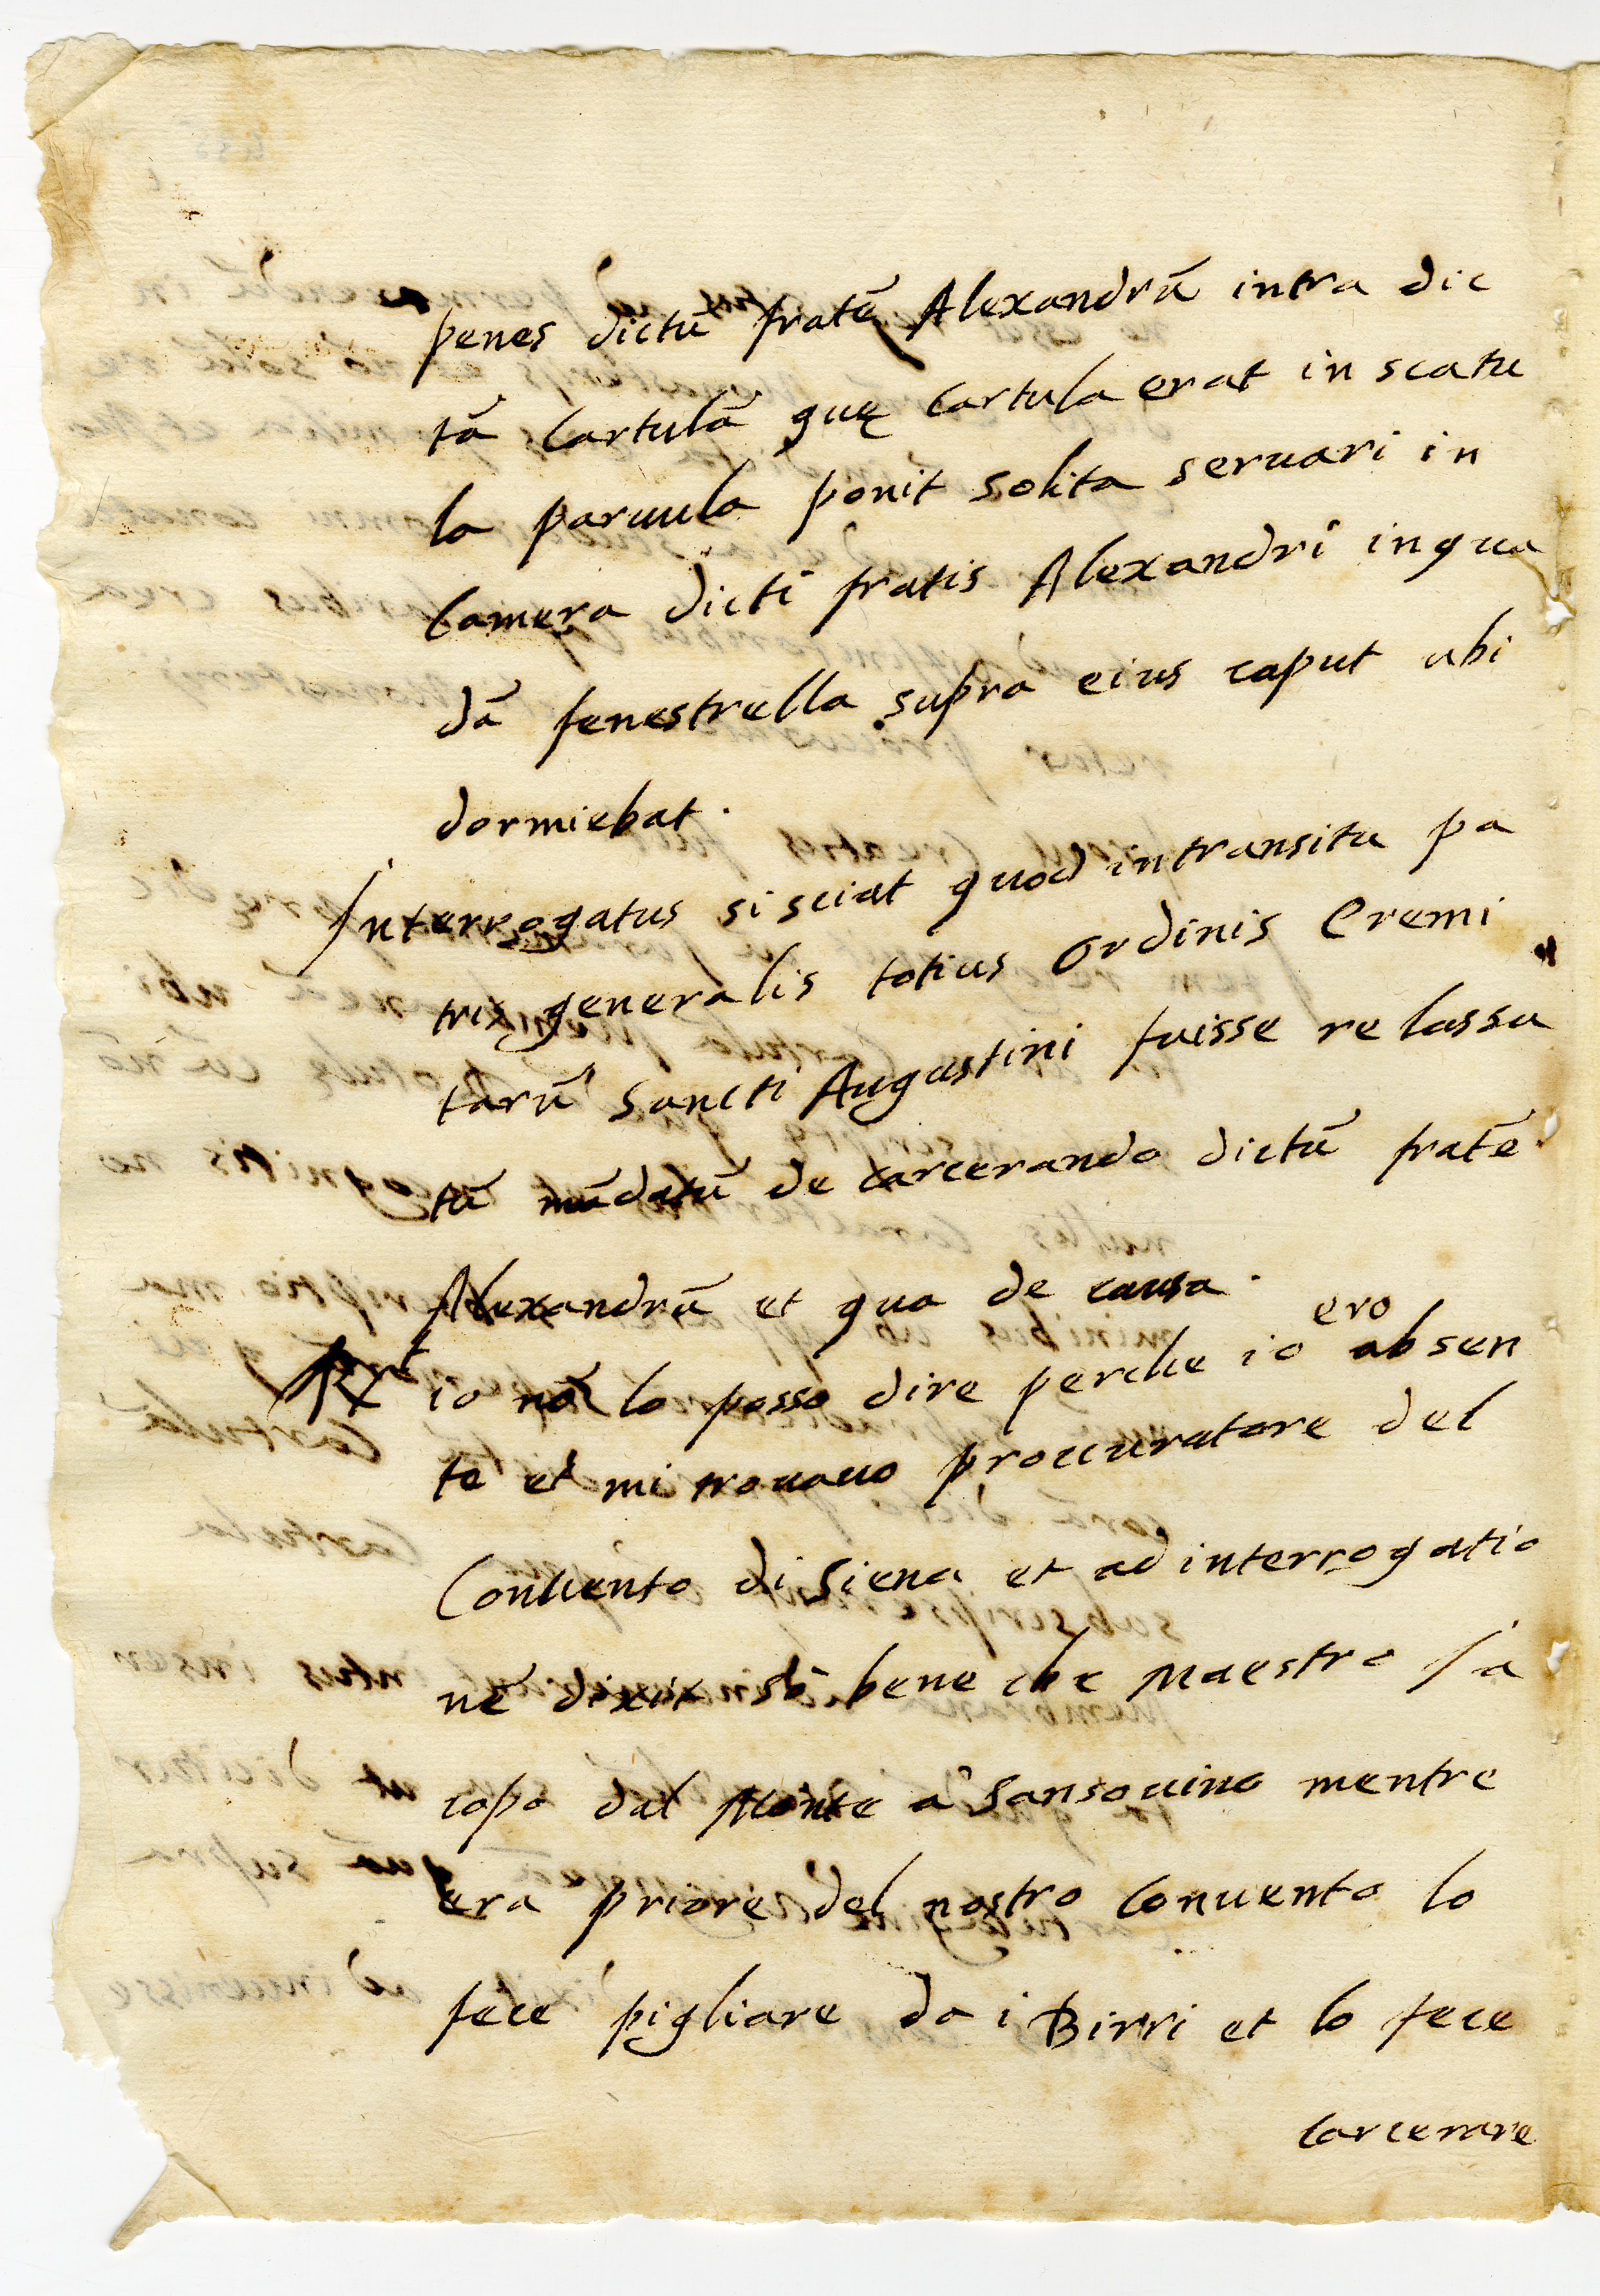 penes dictū fratē Alexandrū intra dic
tā Cartulā quę Cartula erat in scatu
la paruula ponit solita seruari in
Camera dicti fratis Alexandri in qua
dā fenestrella supra eius caput ubi
dormiebat.
Interrogatus si sciat quod in transitu pa
tris generalis totius Ordinis Eremi
tarū Sancti Augustini fuisse relassa
tū mādatū de carcerando dictū fratē
Alexandrū et qua de causa.
Rt io nō lo posso dire perche io ero absen
te et mi trouauo proccuratore del
Conuento di Siena et ad interrogatio
nē dixit sò bene che Maestro Ja
copo dal Monte a Sansouino mentre
era priore del nostro Conuento lo
fece pigliare da i Birri et lo fece
Carcerare